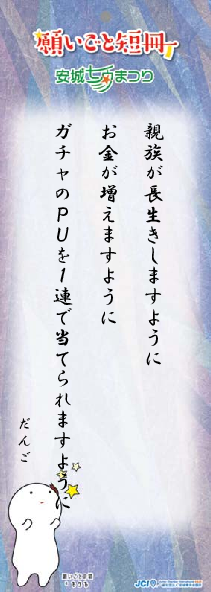 願いごと短冊
安城七夕まつり
親族が長生きしますように
お金が増えますように
ガチャのPUを1連で当てられますように
だんご
願いごと短冊
JCI